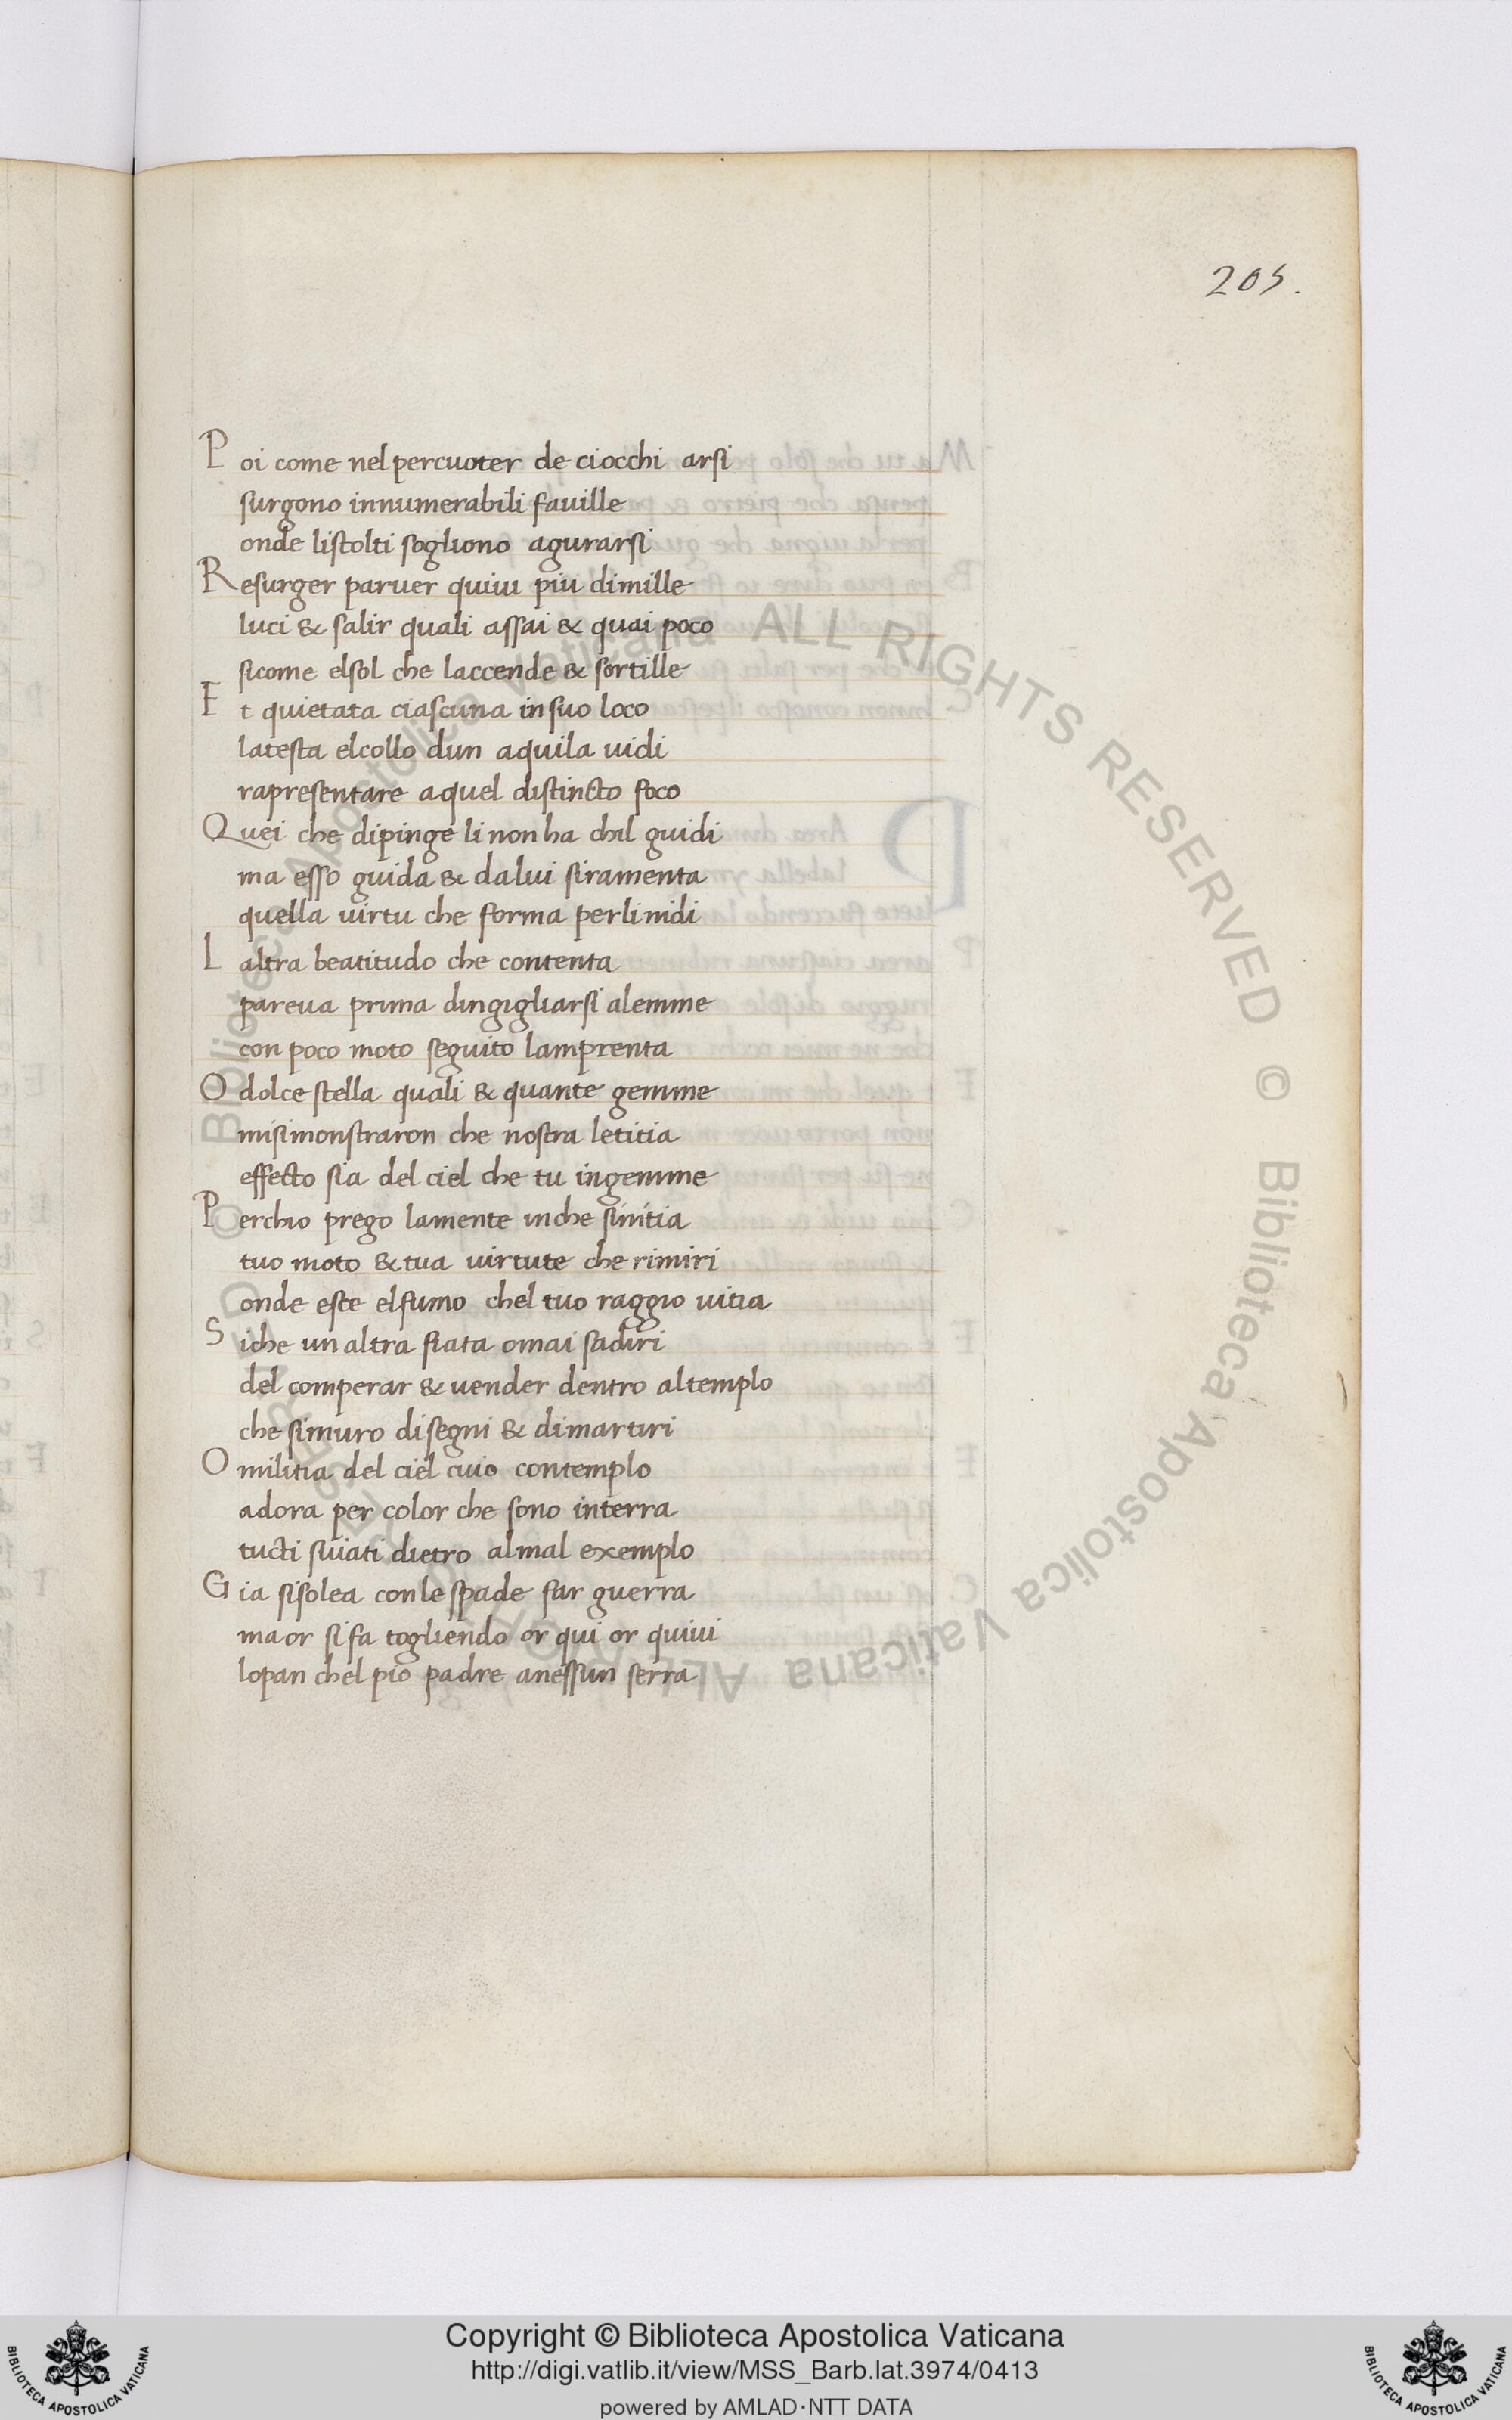 205.
Poi come nel percuoter de ciocchi arsi
surgono innumerabili fauille
onde listolti sogliono agurarsi
Resurger paruer quiui piu dimille
luci & salir quali assai & quai poco
sicome elsol che laccende & sortille
Et quietata ciascuna insuo loco
latesta elcollo dun aquila uidi
rapresentare aquel distincto foco
Quei che dipinge li non ha chil guidi
ma esso guida & dalui siramenta
quella uirtu che forma perli nidi
Laltra beatitudo che contenta
pareua prima dingigliarsi alemme
con poco moto seguito lamprenta
O dolce stella quali & quante gemme
misimonstraron che nostra letitia
effecto sia del ciel che tu ingemme
Perchio prego lamente inche sinitia
tuo moto & tua uirtute che rimiri
onde este elfumo chel tuo raggio uitia
Siche un altra fiata omai sadiri
del comperar & uender dentro altemplo
che simuro di segni & dimartiri
O militia del ciel cuio contemplo
adora per color che sono interra
tucti suiati dietro almal exemplo
Gia sisolea conle spade far guerra
ma or sifa togliendo or qui or quiui
lopan chel pio padre anessun serra
Biblioteca Apostolica Vaticana ALL RIGHTS RESERVED © Biblioteca Apostolica Vaticana ALL RIGHTS RESERVED ©
Copyright © Biblioteca Apostolica Vaticana
http://digi.vatlib.it/view/MSS_Barb.lat.3974/0413
powered by AMLAD·NTT DATA
BIBLIOTECA APOSTOLICA VATICANA
BIBLIOTECA APOSTOLICA VATICANA